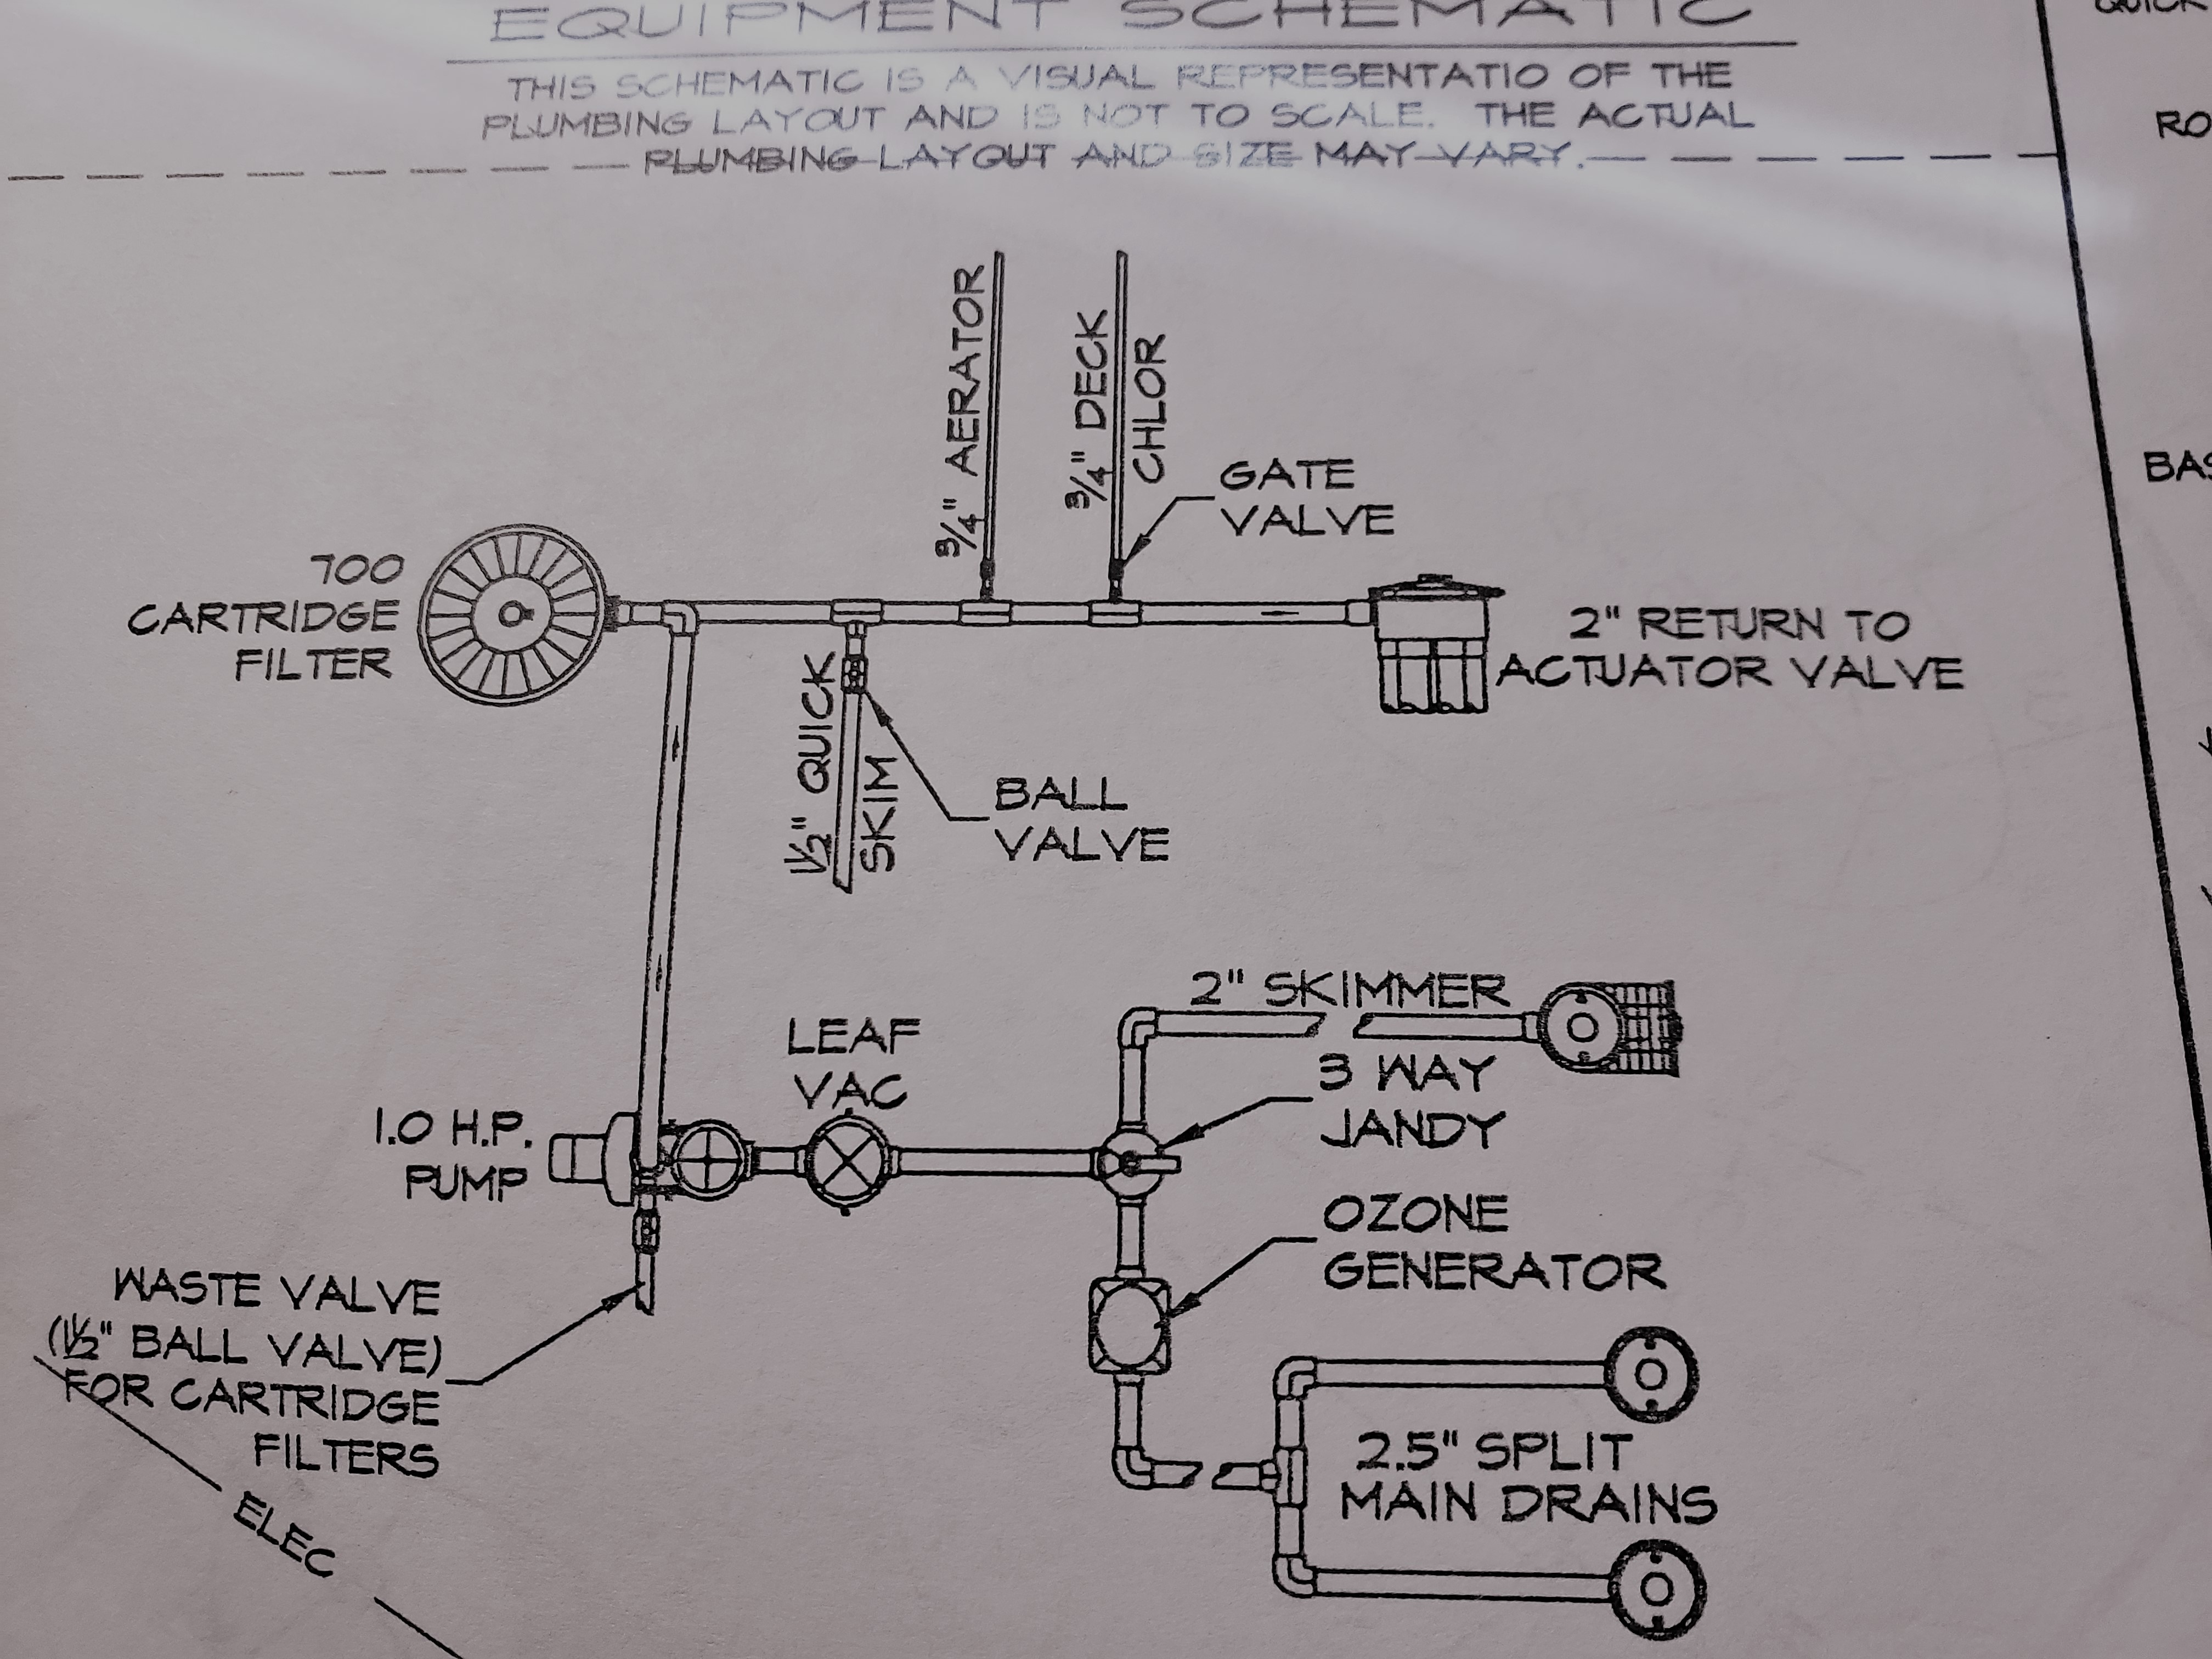 EQUIPMENT SCHEMATIC
THIS SCHEMATIC IS A VISUAL REPRESENTATIO OF THE
PLUMBING LAYOUT AND IS NOT TO SCALE. THE ACTUAL
PLUMBING LAYOUT AND SIZE MAY VARY.
QUICK
RO
BAS
3/4" AERATOR
3/4" DECK
CHLOR
GATE
VALVE
700
CARTRIDGE
FILTER
2" RETURN TO
ACTUATOR VALVE
1½" QUICK
SKIM
BALL
VALVE
2" SKIMMER
3 WAY
JANDY
LEAF
VAC
1.0 H.P.
PUMP
OZONE
GENERATOR
WASTE VALVE
(1½" BALL VALVE)
FOR CARTRIDGE
FILTERS
2.5" SPLIT
MAIN DRAINS
ELEC